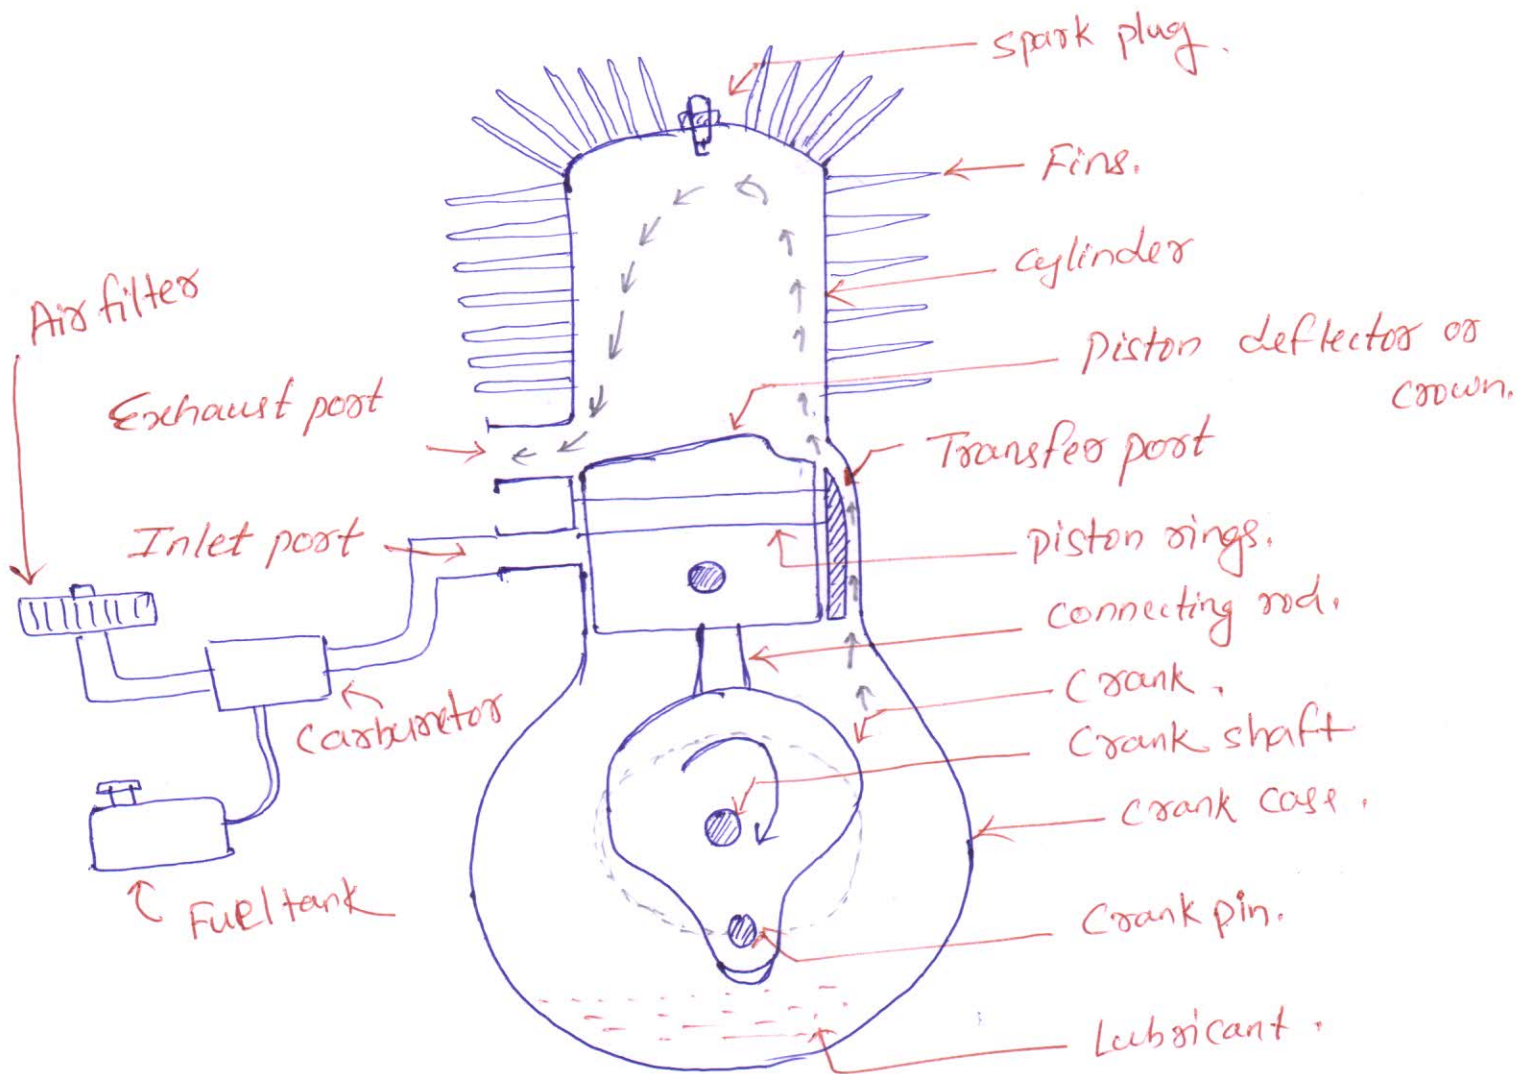 Spark plug.
Fins.
Cylinder
Air filter
Piston deflector or
crown.
Exhaust port
Transfer port
Inlet port
piston rings.
connecting rod.
Crank.
Carburetor
Crank shaft
Crank case.
Fuel tank
Crank pin.
Lubricant.